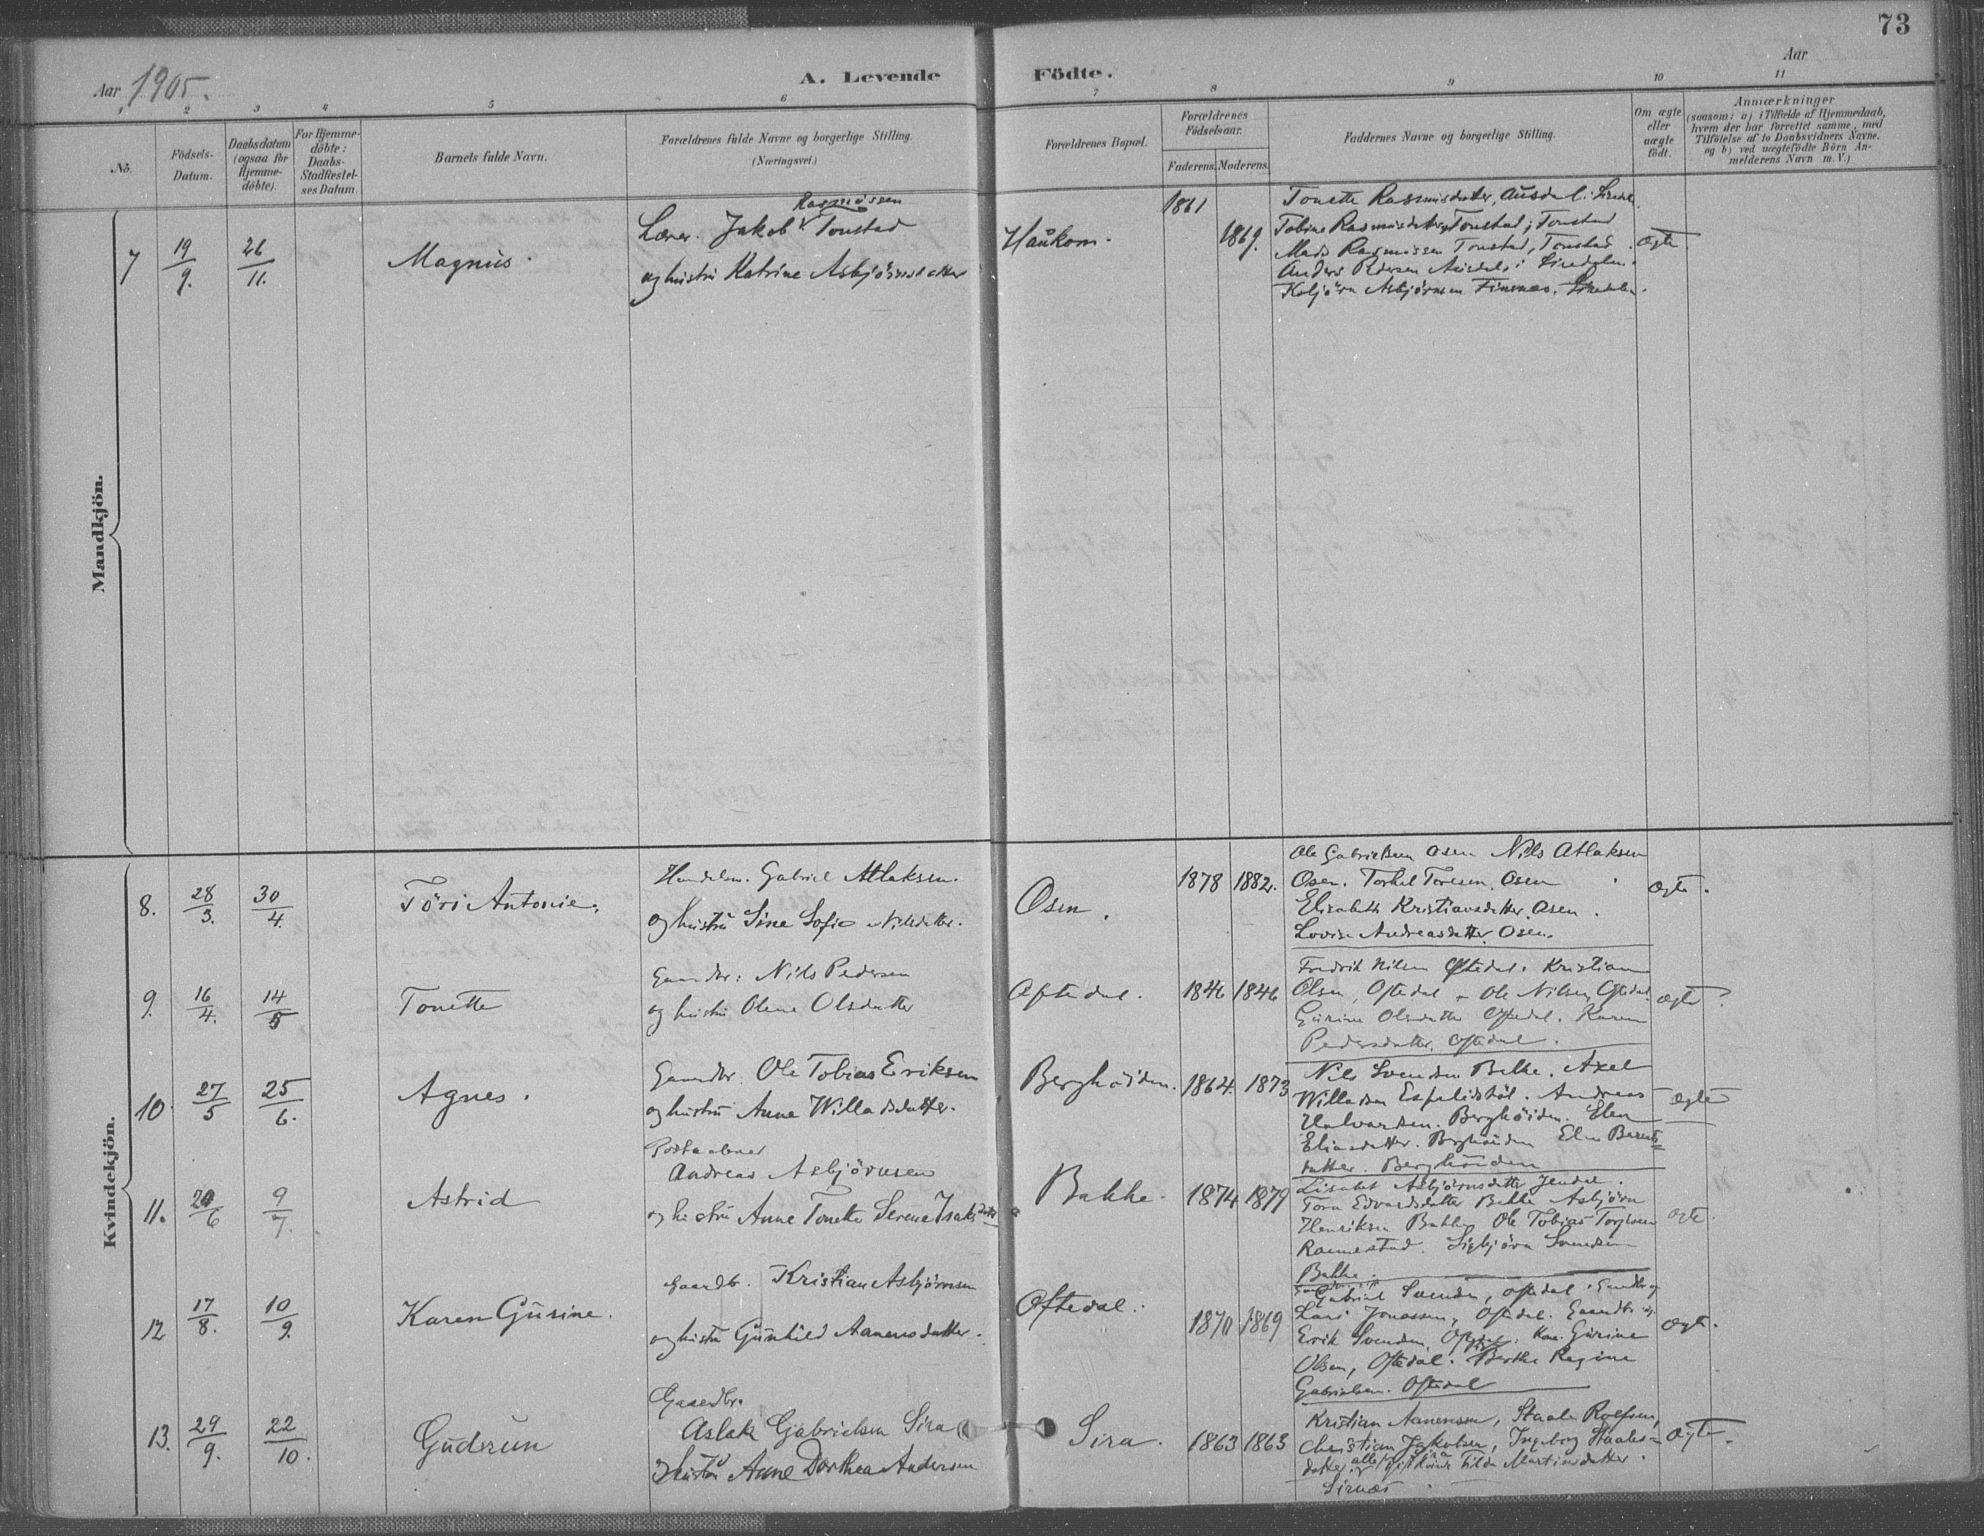 73
Aar 1905.
A. Levende Födte.
Aar
1 2 3 4 5 6 7 8 9 10 11
No.
Födsels-
Datum.
Daabsdatum
(ogsaa for
Hjemme-
döbte).
For Hjemme-
döbte:
Daabs-
Stadfæstel-
ses Datum.
Barnets fulde Navn.
Forældrenes fulde Navne og borgerlige Stilling.
(Næringsvei.)
Forældrenes Bopæl.
Forældrenes
Födselsaar.
Faderens. Moderens.
Faddernes Navne og borgerlige Stilling.
Om ægte
eller
uægte
födt.
Anmærkninger
(saasom: a) i Tilfælde af Hjemmedaab,
hvem der har forrettet samme, med
Tilföielse af to Daabsvidners Navne.
og b) ved uægtefödte Börn An-
melderens Navn m. V.)
Mandkjön.
7 19/9. 26/11. Magnus.
Rasmussen
Lærer. Jakob Tonstad
og hustru Katrine Asbjørnsdatter
Haukom. 1861 1869.
Tonette Rasmusdatter, Ausdal i Siredal.
Tobine Rasmusdatter Tonstad, Tonstad
Mads Rasmussen Tonstad, Tonstad.
Anders Pedersen Ausdal i Siredalen.
Koljörn Asbjørnsen Finsnes. Siredalen.
Ægte
Kvindekjön.
8. 28/3. 30/4. Töri Antonie.
Handelsm. Gabriel Atlaksen.
og hustru Sine Sofie Nilsdatter.
Osen. 1878 1882.
Ole Gabrielsen Osen Nils Atlaksen
Osen. Torkel Toresen. Osen
Elisabeth Kristiansdatter. Osen.
Lovise Andreasdatter. Osen.
Ægte.
9. 16/4. 14/5 Tonette
Gaardbr: Nils Pedersen
og hustru Olene Olsdatter
Oftedal. 1846 1846
Fredrik Nilsen Oftedal. Kristian
Olsen, Oftedal. Ole Nilsen, Oftedal.
Gurine Olsdatter Oftedal. Karen
Pedersdatter. Oftedal.
ægte
10. 27/5 25/6. Agnes.
Gaardbr. Ole Tobias Eriksen
og hustru Anne Willadsdatter.
Berghöiden. 1864. 1873
Nils Svendsen Bakke. Axel
Willadsen Espelidstöl. Andreas
Halvorsen. Berghöiden. Elen
Eliasdatter. Berghöiden Elen Berents=
datter. Berghöiden
ægte
11. 20/6 9/7. Astrid
Postaabner
Andreas Asbjørnsen
og hustru Anne Tonette Serene Isaksdatter
Bakke. 1874 1879
Lisabet Asbjørnsdatter Jendal.
Tora Edvardsdatter Bakke Asbjørn
Henriksen Bakke, Ole Tobias Torjusen
Rannestad. Sigbjørn Svendsen
Bakke.
ægte.
12 17/8. 10/9. Karen Gurine.
Gaardbr. Kristian Asbjørnsen
og hustru Gunhild Aanensdatter.
Oftedal. 1870 1869
Gabriel Svendsen, Oftedal. Gaardbr. og
Lars Jonassen, Oftedal. Gaardbr. og
Erik Svendsen, Oftedal. Kone. Gurine
Olsen, Oftedal. Pige Berthe Regine
Gabrielsen. Oftedal
Ægte.
13. 29/9. 22/10. Gudrun
Gaardbr.
Aslak Gabrielsen Sira
Hustru Anne Dorthea Andersen
Sira. 1863 1863
Kristian Aanensen, Staale Rolfsen,
Christian Jakobsen, Ingeborg Staales=
datter, alle Sira Gift Kvinde Hilda Martinsdatter.
Sirnæs
Ægte.